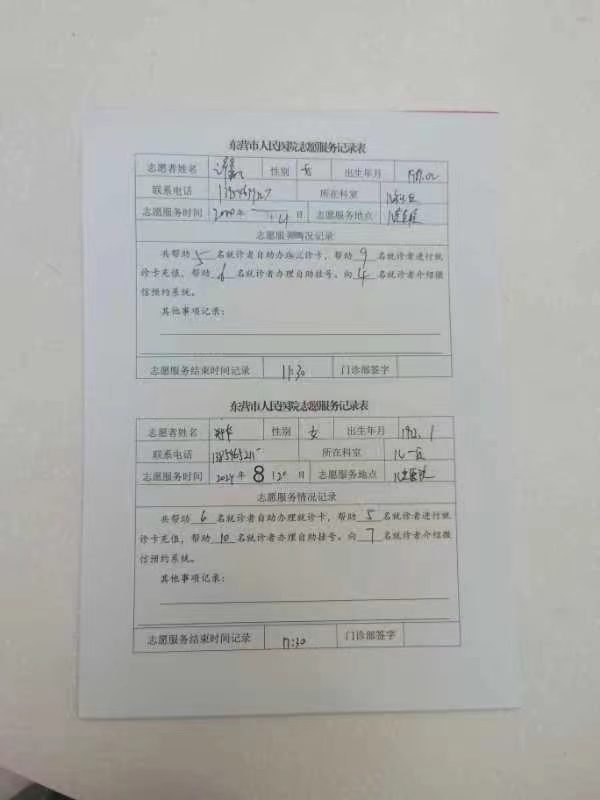 东营市人民医院志愿服务记录表
志愿者姓名 性别 女 出生年月
联系电话 所在科室
志愿服务时间 年 日 志愿服务地点
志愿服务情况记录
共帮助 5 名就诊者自助办理就诊卡，帮助 9 名就诊者进行就
诊卡充值，帮助 6 名就诊者办理自助挂号。向 4 名就诊者介绍微
信预约系统。
其他事项记录：
志愿服务结束时间记录 11:30 门诊部签字
东营市人民医院志愿服务记录表
志愿者姓名 性别 女 出生年月
联系电话 所在科室 儿一
志愿服务时间 2024 年 8 日 志愿服务地点
志愿服务情况记录
共帮助 6 名就诊者自助办理就诊卡，帮助 5 名就诊者进行就
诊卡充值，帮助 10 名就诊者办理自助挂号。向 7 名就诊者介绍微
信预约系统。
其他事项记录：
志愿服务结束时间记录 17:30 门诊部签字